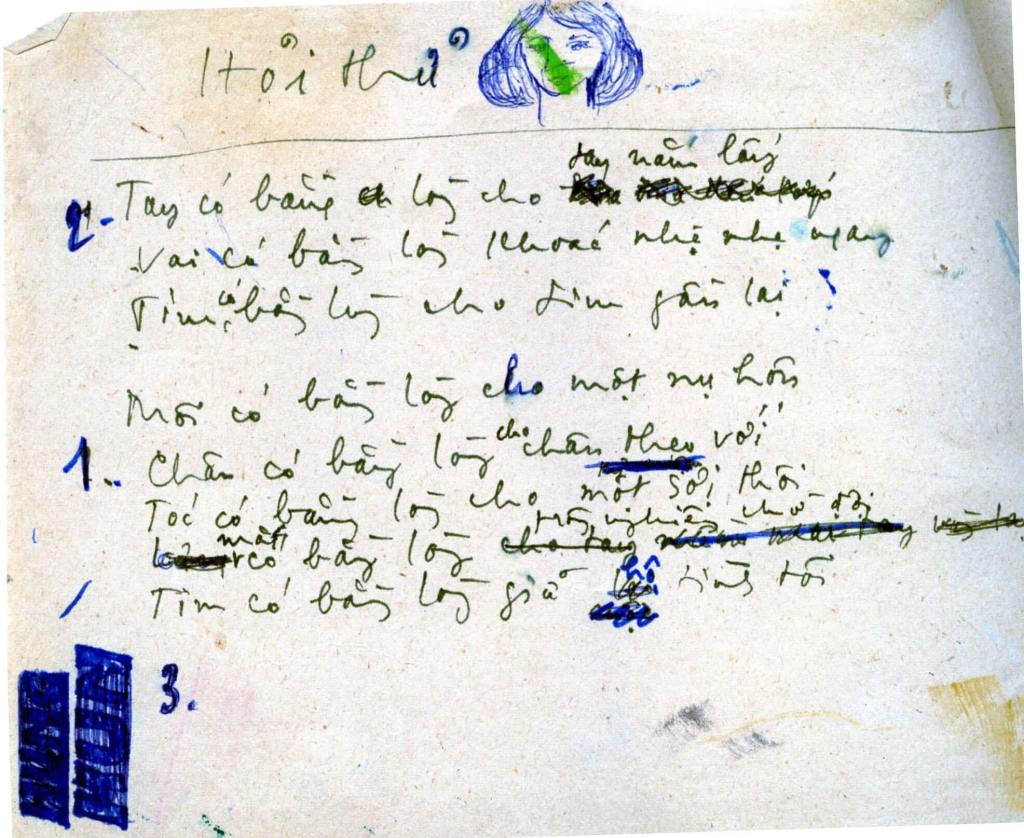 Hỏi thử
tay nắm lấy
2. Tay có bằng lòng cho
Vai có bằng lòng khoác nhè nhẹ ngang
Tim có bằng lòng cho tim gần lại
Môi có bằng lòng cho một nụ hôn
1. Chân có bằng lòng cho chân theo với
Tóc có bằng lòng cho một sợi thôi
mắt có bằng lòng chờ đợi
Tim có bằng lòng giả bộ tình tôi
3.